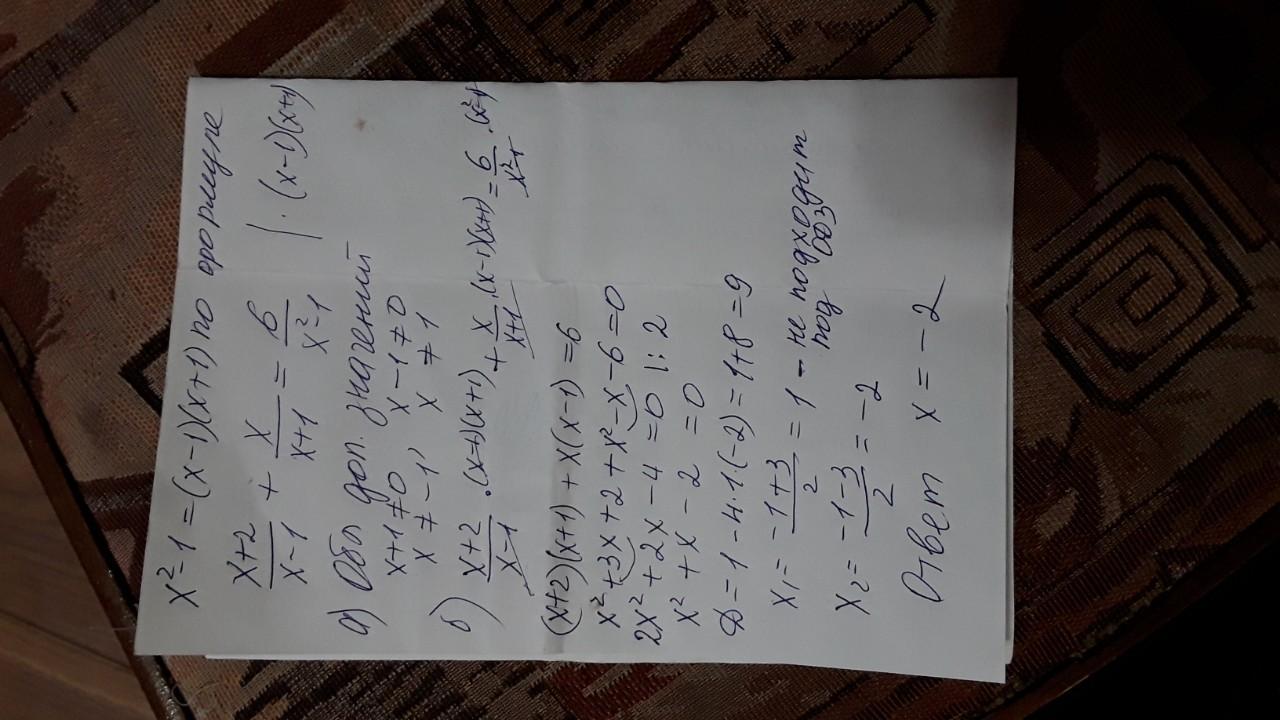 x²-1 = (x-1)(x+1) по формуле
\frac{x+2}{x-1} + \frac{x}{x+1} = \frac{6}{x²-1} | · (x-1)(x+1)
а) Обл доп. значений
x+1≠0 x-1≠0
x≠-1, x≠1
б) \frac{x+2}{x-1} · (x-1)(x+1) + \frac{x}{x+1} · (x-1)(x+1) = \frac{6}{x²-1} · (x²-1)
(x+2)(x+1) + x(x-1) = 6
x²+3x+2+x²-x-6=0
2x²+2x-4=0 |:2
x²+x-2=0
D=1-4·1·(-2)=1+8=9
x₁= \frac{-1+3}{2} = 1 - не подходит
под ООЗ
x₂= \frac{-1-3}{2} = -2
Ответ x=-2